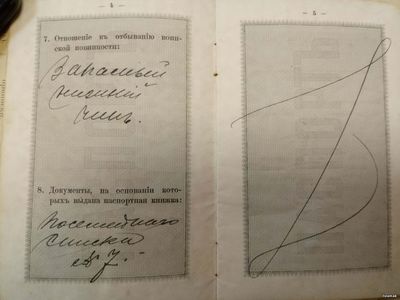 — 4 —
7. Отношеніе къ отбыванію воин-
ской повинности:
Запасный
нижній
чинъ.
8. Документы, на основаніи кото-
рыхъ выдана паспортная книжка:
посемейнаго
списка
№ 7.
— 5 —